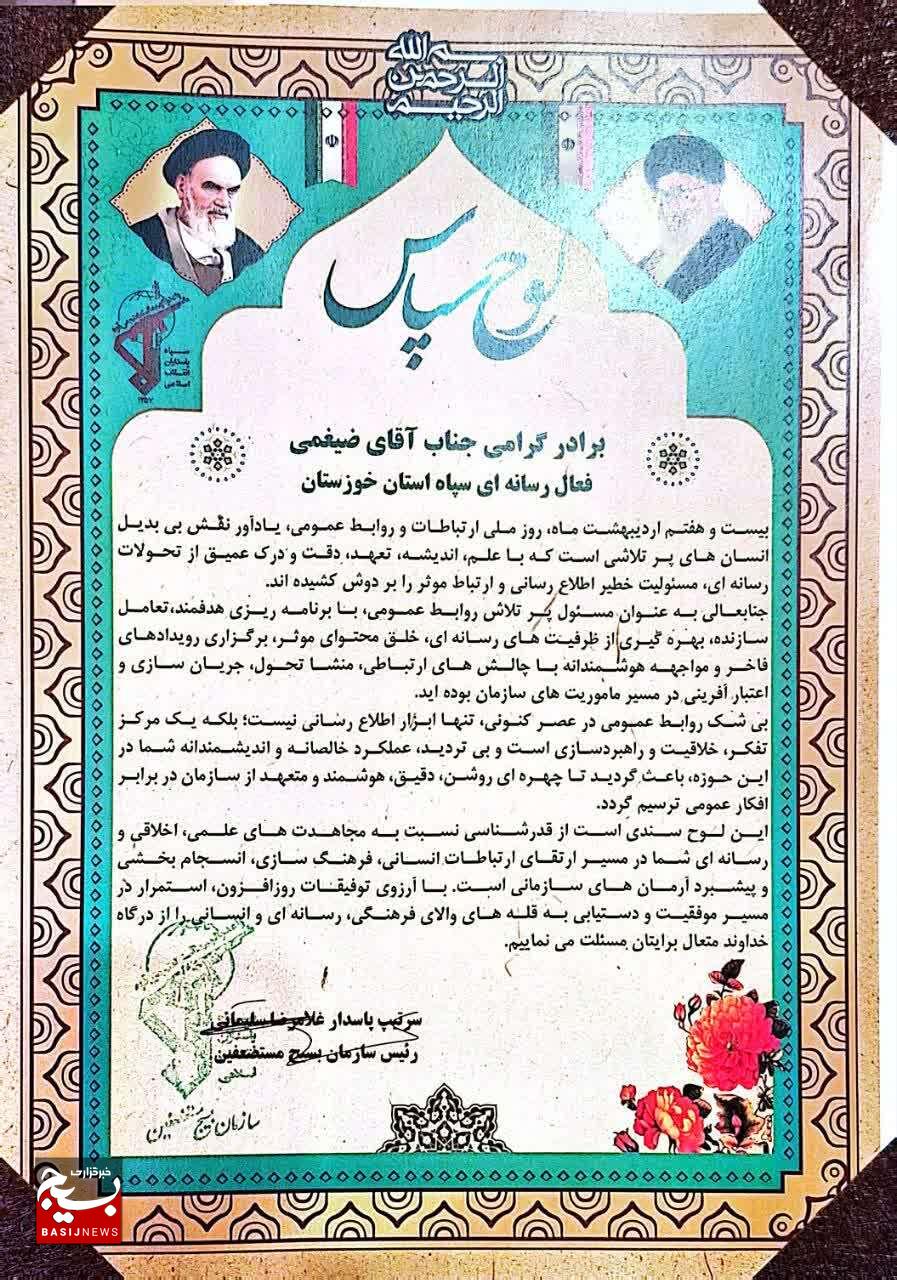 بسم الله
الرحمن
الرحیم
لوح سپاس
سپاه
پاسداران
انقلاب
اسلامی
۱۳۵۷
برادر گرامی جناب آقای ضیغمی
فعال رسانه ای سپاه استان خوزستان
بیست و هفتم اردیبهشت ماه، روز ملی ارتباطات و روابط عمومی، یادآور نقش بی بدیل
انسان های پر تلاشی است که با علم، اندیشه، تعهد، دقت و درک عمیق از تحولات
رسانه ای، مسئولیت خطیر اطلاع رسانی و ارتباط موثر را بر دوش کشیده اند.
جنابعالی به عنوان مسئول پر تلاش روابط عمومی، با برنامه ریزی هدفمند،تعامل
سازنده، بهره گیری از ظرفیت های رسانه ای، خلق محتوای موثر، برگزاری رویدادهای
فاخر و مواجهه هوشمندانه با چالش های ارتباطی، منشا تحول، جریان سازی و
اعتبار آفرینی در مسیر ماموریت های سازمان بوده اید.
بی شک روابط عمومی در عصر کنونی، تنها ابزار اطلاع رسانی نیست؛ بلکه یک مرکز
تفکر، خلاقیت و راهبردسازی است و بی تردید، عملکرد خالصانه و اندیشمندانه شما در
این حوزه، باعث گردید تا چهره ای روشن، دقیق، هوشمند و متعهد از سازمان در برابر
افکار عمومی ترسیم گردد.
این لوح سندی است از قدرشناسی نسبت به مجاهدت های علمی، اخلاقی و
رسانه ای شما در مسیر ارتقای ارتباطات انسانی، فرهنگ سازی، انسجام بخشی
و پیشبرد آرمان های سازمانی است. با آرزوی توفیقات روزافزون، استمرار در
مسیر موفقیت و دستیابی به قله های والای فرهنگی، رسانه ای و انسانی را از درگاه
خداوند متعال برایتان مسئلت می نماییم.
سرتیپ پاسدار غلامرضا سلیمانی
رئیس سازمان بسیج مستضعفین
اسلامی
سازمان بسیج مستضعفین
خبرگزاری
بسیج
BASIJNEWS